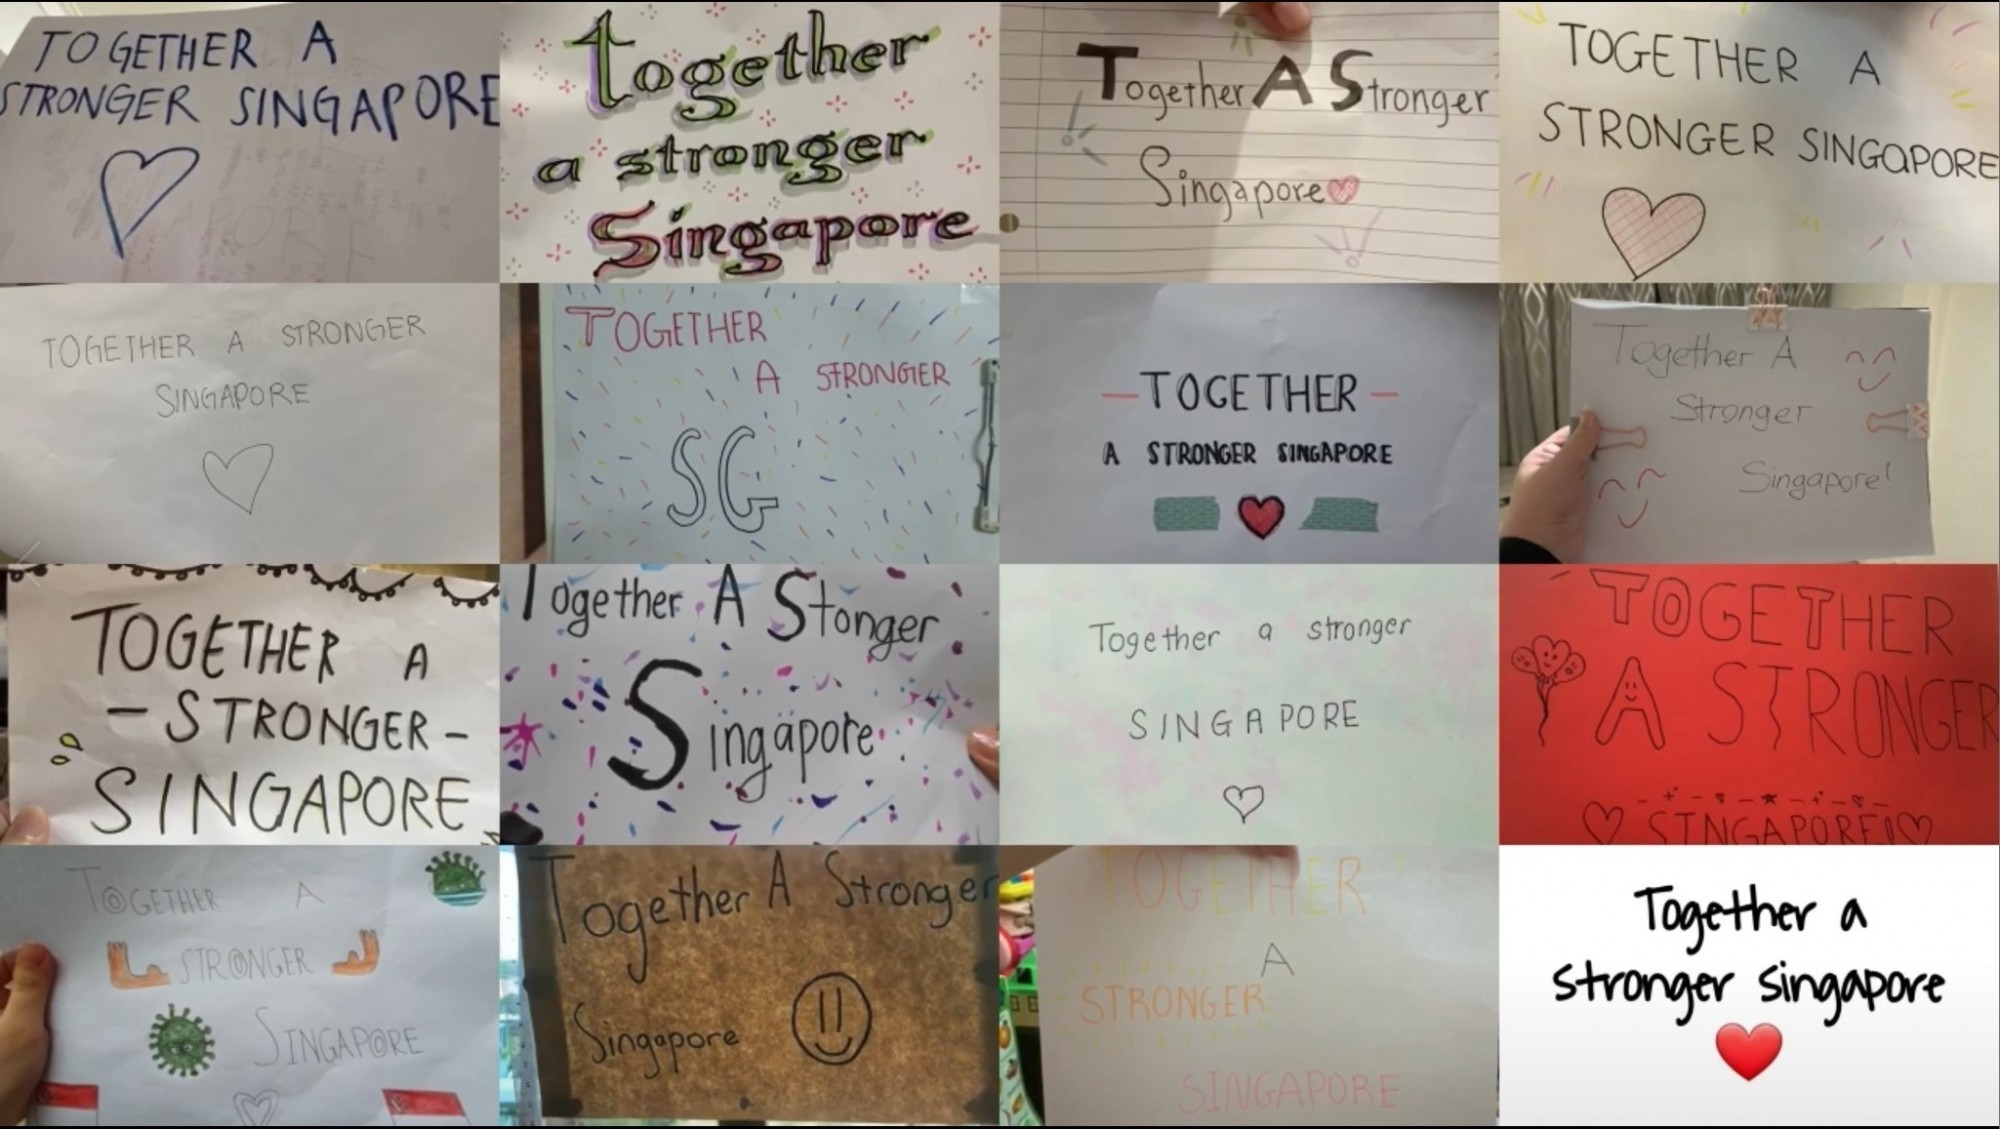 TOGETHER A
STRONGER SINGAPORE
together
a stronger
Singapore
Together A Stronger
Singapore
TOGETHER A
STRONGER SINGAPORE
TOGETHER A STRONGER
SINGAPORE
TOGETHER
A STRONGER
SG
TOGETHER
A STRONGER SINGAPORE
Together A
Stronger
Singapore!
TOGETHER A
- STRONGER -
SINGAPORE
Together A Stonger
Singapore
Together a stronger
SINGAPORE
TOGETHER
A STRONGER
SINGAPORE!
TOGETHER A
STRONGER
SINGAPORE
Together A Stronger
Singapore
TOGETHER
A
STRONGER
SINGAPORE
Together a
stronger singapore